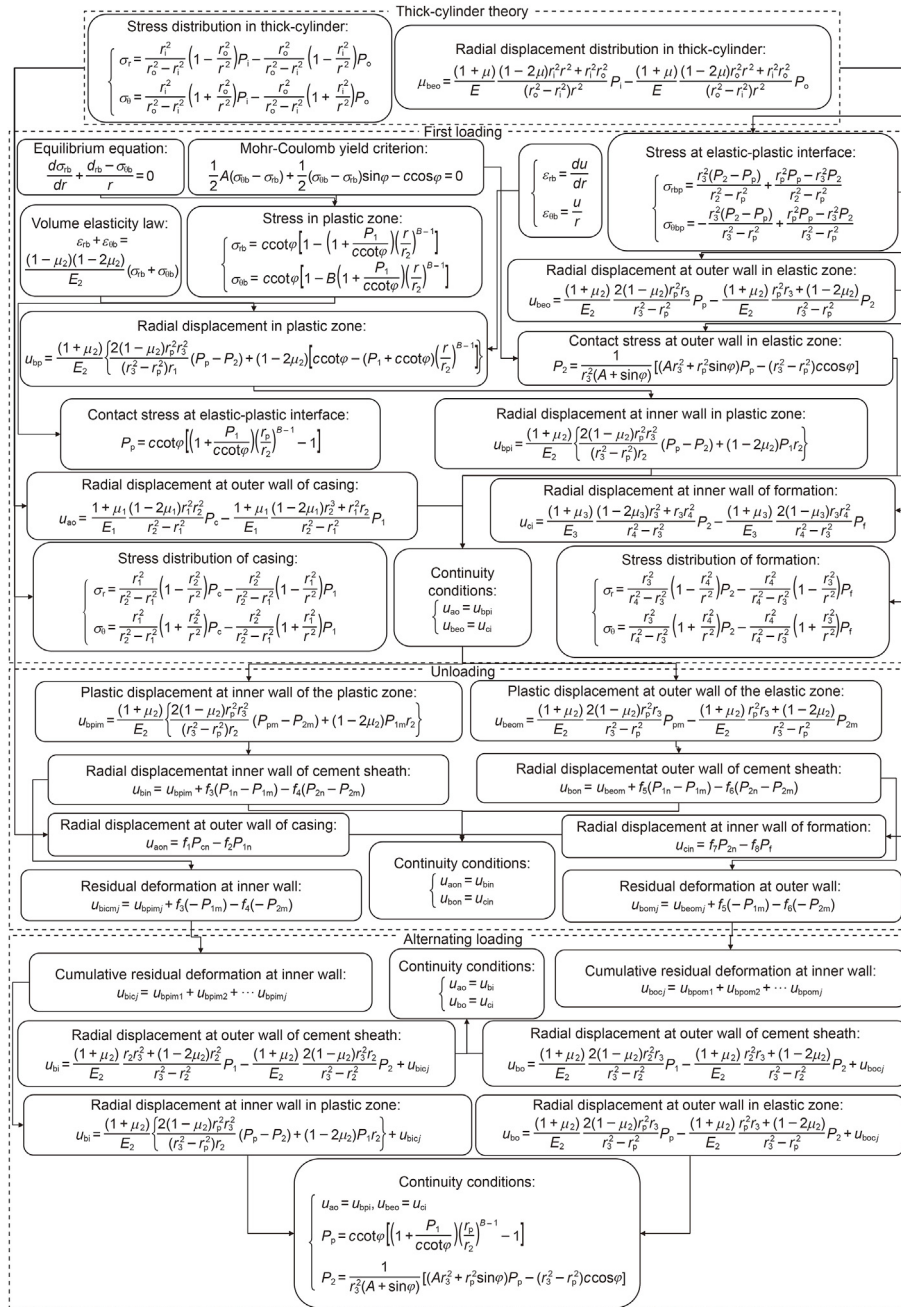 Thick-cylinder theory
Stress distribution in thick-cylinder:
{ σ_r = r_i²/(r_o² − r_i²) (1 − r_o²/r²)P_i − r_o²/(r_o² − r_i²) (1 − r_i²/r²)P_o
σ_θ = r_i²/(r_o² − r_i²) (1 + r_o²/r²)P_i − r_o²/(r_o² − r_i²) (1 + r_i²/r²)P_o
Radial displacement distribution in thick-cylinder:
μ_beo = (1 + μ)/E (1 − 2μ)r_i²r² + r_i²r_o²/(r_o² − r_i²)r² P_i − (1 + μ)/E (1 − 2μ)r_o²r² + r_i²r_o²/(r_o² − r_i²)r² P_o
First loading
Equilibrium equation:
dσ_rb/dr + d_rb − σ_θb/r = 0
Mohr-Coulomb yield criterion:
1/2 A(σ_θb − σ_rb) + 1/2 (σ_θb − σ_rb)sinφ − ccosφ = 0
{ ε_rb = du/dr
ε_θb = u/r
Stress at elastic-plastic interface:
{ σ_rbp = r_3²(P_2 − P_p)/(r_2² − r_p²) + (r_p²P_p − r_3²P_2)/(r_3² − r_p²)
σ_θbp = − r_3²(P_2 − P_p)/(r_3² − r_p²) + (r_p²P_p − r_3²P_2)/(r_3² − r_p²)
Volume elasticity law:
ε_rb + ε_θb =
(1 − μ_2)(1 − 2μ_2)/E_2 (σ_rb + σ_θb)
Stress in plastic zone:
{ σ_rb = ccotφ[1 − (1 + P_1/ccotφ)(r/r_2)^(B − 1)]
σ_θb = ccotφ[1 − B(1 + P_1/ccotφ)(r/r_2)^(B − 1)]
Radial displacement at outer wall in elastic zone:
u_beo = (1 + μ_2)/E_2 2(1 − μ_2)r_p²r_3/(r_3² − r_p²) P_p − (1 + μ_2)/E_2 r_p²r_3 + (1 − 2μ_2)/(r_3² − r_p²) P_2
Radial displacement in plastic zone:
u_bp = (1 + μ_2)/E_2 {2(1 − μ_2)r_p²r_3²/(r_3² − r_p²)r_1 (P_p − P_2) + (1 − 2μ_2)[ccotφ − (P_1 + ccotφ)(r/r_2)^(B − 1)]}
Contact stress at outer wall in elastic zone:
P_2 = 1/r_3²(A + sinφ) [(Ar_3² + r_p²sinφ)P_p − (r_3² − r_p²)ccosφ]
Contact stress at elastic-plastic interface:
P_p = ccotφ[(1 + P_1/ccotφ)(r_p/r_2)^(B − 1) − 1]
Radial displacement at inner wall in plastic zone:
u_bpi = (1 + μ_2)/E_2 {2(1 − μ_2)r_p²r_3²/(r_3² − r_p²)r_2 (P_p − P_2) + (1 − 2μ_2)P_1r_2}
Radial displacement at outer wall of casing:
u_ao = 1 + μ_1/E_1 (1 − 2μ_1)r_1²r_2²/(r_2² − r_1²) P_c − 1 + μ_1/E_1 (1 − 2μ_1)r_2³ + r_1²r_2/(r_2² − r_1²) P_1
Radial displacement at inner wall of formation:
u_ci = (1 + μ_3)/E_3 (1 − 2μ_3)r_3² + r_3r_4²/(r_4² − r_3²) P_2 − (1 + μ_3)/E_3 2(1 − μ_3)r_3r_4²/(r_4² − r_3²) P_f
Stress distribution of casing:
{ σ_r = r_1²/(r_2² − r_1²) (1 − r_2²/r²)P_c − r_2²/(r_2² − r_1²) (1 − r_1²/r²)P_1
σ_θ = r_1²/(r_2² − r_1²) (1 + r_2²/r²)P_c − r_2²/(r_2² − r_1²) (1 + r_1²/r²)P_1
Continuity
conditions:
{ u_ao = u_bpi
u_beo = u_ci
Stress distribution of formation:
{ σ_r = r_3²/(r_4² − r_3²) (1 − r_4²/r²)P_2 − r_4²/(r_4² − r_3²) (1 − r_3²/r²)P_f
σ_θ = r_3²/(r_4² − r_3²) (1 + r_4²/r²)P_2 − r_4²/(r_4² − r_3²) (1 + r_3²/r²)P_f
Unloading
Plastic displacement at inner wall of the plastic zone:
u_bpim = (1 + μ_2)/E_2 {2(1 − μ_2)r_p²r_3²/(r_3² − r_p²)r_2 (P_pm − P_2m) + (1 − 2μ_2)P_1mr_2}
Plastic displacement at outer wall of the elastic zone:
u_beom = (1 + μ_2)/E_2 2(1 − μ_2)r_p²r_3/(r_3² − r_p²) P_pm − (1 + μ_2)/E_2 r_p²r_3 + (1 − 2μ_2)/(r_3² − r_p²) P_2m
Radial displacementat inner wall of cement sheath:
u_bin = u_bpim + f_3(P_1n − P_1m) − f_4(P_2n − P_2m)
Radial displacementat outer wall of cement sheath:
u_bon = u_beom + f_5(P_1n − P_1m) − f_6(P_2n − P_2m)
Radial displacement at outer wall of casing:
u_aon = f_1P_cn − f_2P_1n
Continuity conditions:
{ u_aon = u_bin
u_bon = u_cin
Radial displacement at inner wall of formation:
u_cin = f_7P_2n − f_8P_f
Residual deformation at inner wall:
u_bicmj = u_bpimj + f_3(−P_1m) − f_4(−P_2m)
Residual deformation at outer wall:
u_bomj = u_beomj + f_5(−P_1m) − f_6(−P_2m)
Alternating loading
Cumulative residual deformation at inner wall:
u_bicj = u_bpim1 + u_bpim2 + ⋯ u_bpimj
Continuity conditions:
{ u_ao = u_bi
u_bo = u_ci
Cumulative residual deformation at inner wall:
u_bocj = u_bpom1 + u_bpom2 + ⋯ u_bpomj
Radial displacement at outer wall of cement sheath:
u_bi = (1 + μ_2)/E_2 r_2r_3² + (1 − 2μ_2)r_2²/(r_3² − r_2²) P_1 − (1 + μ_2)/E_2 2(1 − μ_2)r_3²r_2/(r_3² − r_2²) P_2 + u_bicj
Radial displacement at outer wall of cement sheath:
u_bo = (1 + μ_2)/E_2 2(1 − μ_2)r_2²r_3/(r_3² − r_2²) P_1 − (1 + μ_2)/E_2 r_2²r_3 + (1 − 2μ_2)/(r_3² − r_2²) P_2 + u_bocj
Radial displacement at inner wall in plastic zone:
u_bi = (1 + μ_2)/E_2 {2(1 − μ_2)r_p²r_3²/(r_3² − r_p²)r_2 (P_p − P_2) + (1 − 2μ_2)P_1r_2} + u_bicj
Radial displacement at outer wall in elastic zone:
u_bo = (1 + μ_2)/E_2 2(1 − μ_2)r_p²r_3/(r_3² − r_p²) P_p − (1 + μ_2)/E_2 r_p²r_3 + (1 − 2μ_2)/(r_3² − r_p²) P_2 + u_bocj
Continuity conditions:
{ u_ao = u_bpi, u_beo = u_ci
P_p = ccotφ[(1 + P_1/ccotφ)(r_p/r_2)^(B − 1) − 1]
P_2 = 1/r_3²(A + sinφ) [(Ar_3² + r_p²sinφ)P_p − (r_3² − r_p²)ccosφ]